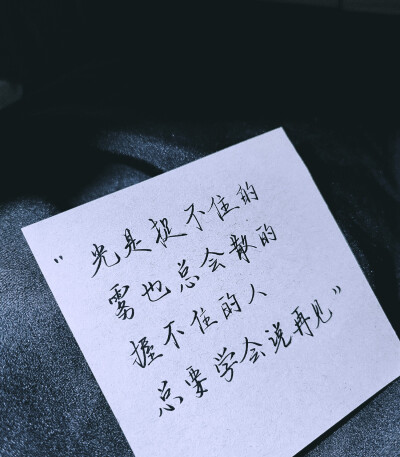 “光是捉不住的
雾也总会散的
握不住的人
总要学会说再见”